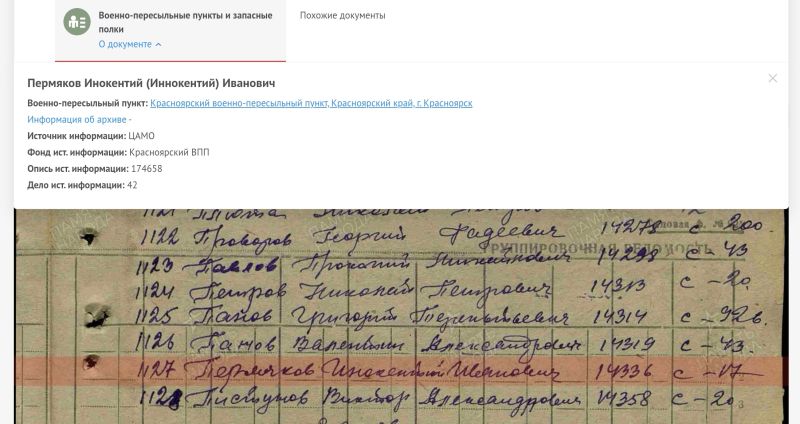 Военно-пересыльные пункты и запасные
полки
О документе
Похожие документы
Пермяков Инокентий (Иннокентий) Иванович
Военно-пересыльный пункт: Красноярский военно-пересыльный пункт, Красноярский край, г. Красноярск
Информация об архиве -
Источник информации: ЦАМО
Фонд ист. информации: Красноярский ВПП
Опись ист. информации: 174658
Дело ист. информации: 42
1122 Георгий Фадеевич 14278 с - 200.
ГРУППИРОВОЧНАЯ ВЕДОМОСТЬ
1123 Павлов 14298 с - 43
1124 Петров Николай Петрович 14313 с - 20.
1125 Панов Григорий Терентьевич 14314 с - 92б.
1126 Панов Валентин Александрович 14319 с - 43.
1127 Пермяков Инокентий Иванович 14336 с - 17
1128 Пистунов Виктор Александрович 14358 с - 20